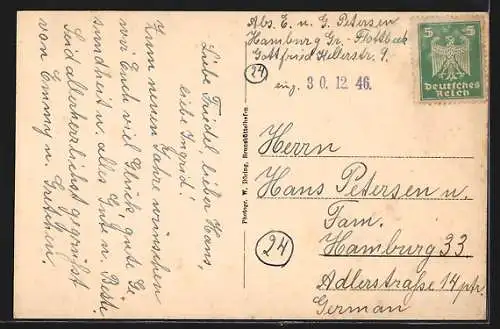 Liebe Friedel, lieber Hans,
liebe Ingrid!
Zum neuen Jahre wünschen
wir Euch viel Glück, gute Ge
sundheit u. alles Gute u. Beste.
Seid allerherzlichst gegrüßt
von Emmy u. Gretchen.
Photogr. W. Döring, Brunsbüttelhafen
Abs. E. u. G. Petersen
Hamburg Gr.-Flottbeck
Gottfried Kellerstr. 9.
24
eing. 30.12.46.
5 5
Deutsches
Reich
Herrn
Hans Petersen u.
Fam.
24
Hamburg 33
Adlerstraße 14 ptr.
German